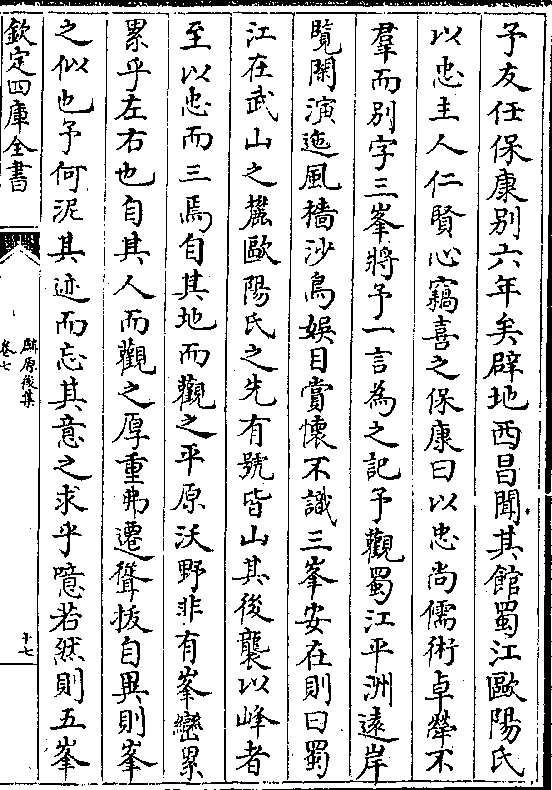 予友任保康别六年矣辟地西昌聞其館蜀江歐陽氏
以忠主人仁賢心竊喜之保康曰以忠尚儒術卓犖不
羣而别字三峯將予一言為之記予觀蜀江平洲遠岸
覽閣演迤風檣沙鳥娱目賞懷不識三峯安在則曰蜀
江在武山之麓歐陽氏之先有號皆山其後襲以峰者
至以忠而三焉自其地而觀之平原沃野非有峯巒累
累乎左右也自其人而觀之厚重弗遷聳拔自異則峯
之似也予何泥其迹而忘其意之求乎噫若然則五峯
欽定四庫全書
麟原後集
卷七
十七